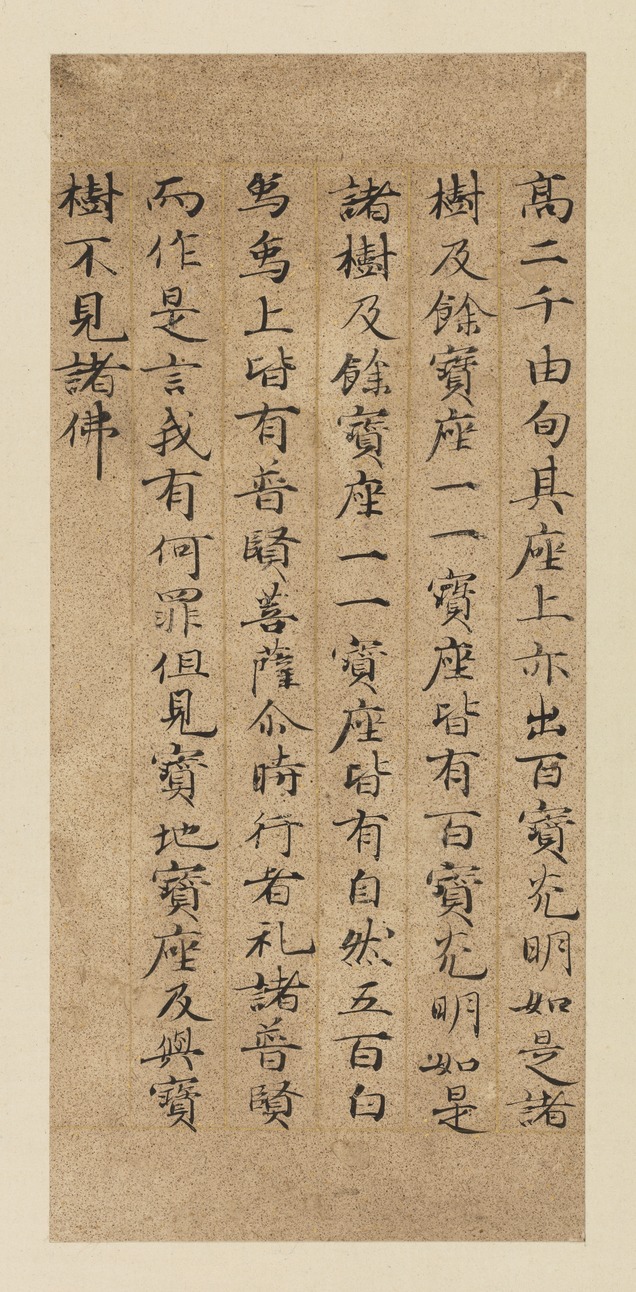 高二千由旬其座上亦出百寶光明如是諸
樹及餘寶座一一寶座皆有百寶光明如是
諸樹及餘寶座一一寶座皆有自然五百白
象象上皆有普賢菩薩尒時行者礼諸普賢
而作是言我有何罪但見寶地寶座及與寶
樹不見諸佛